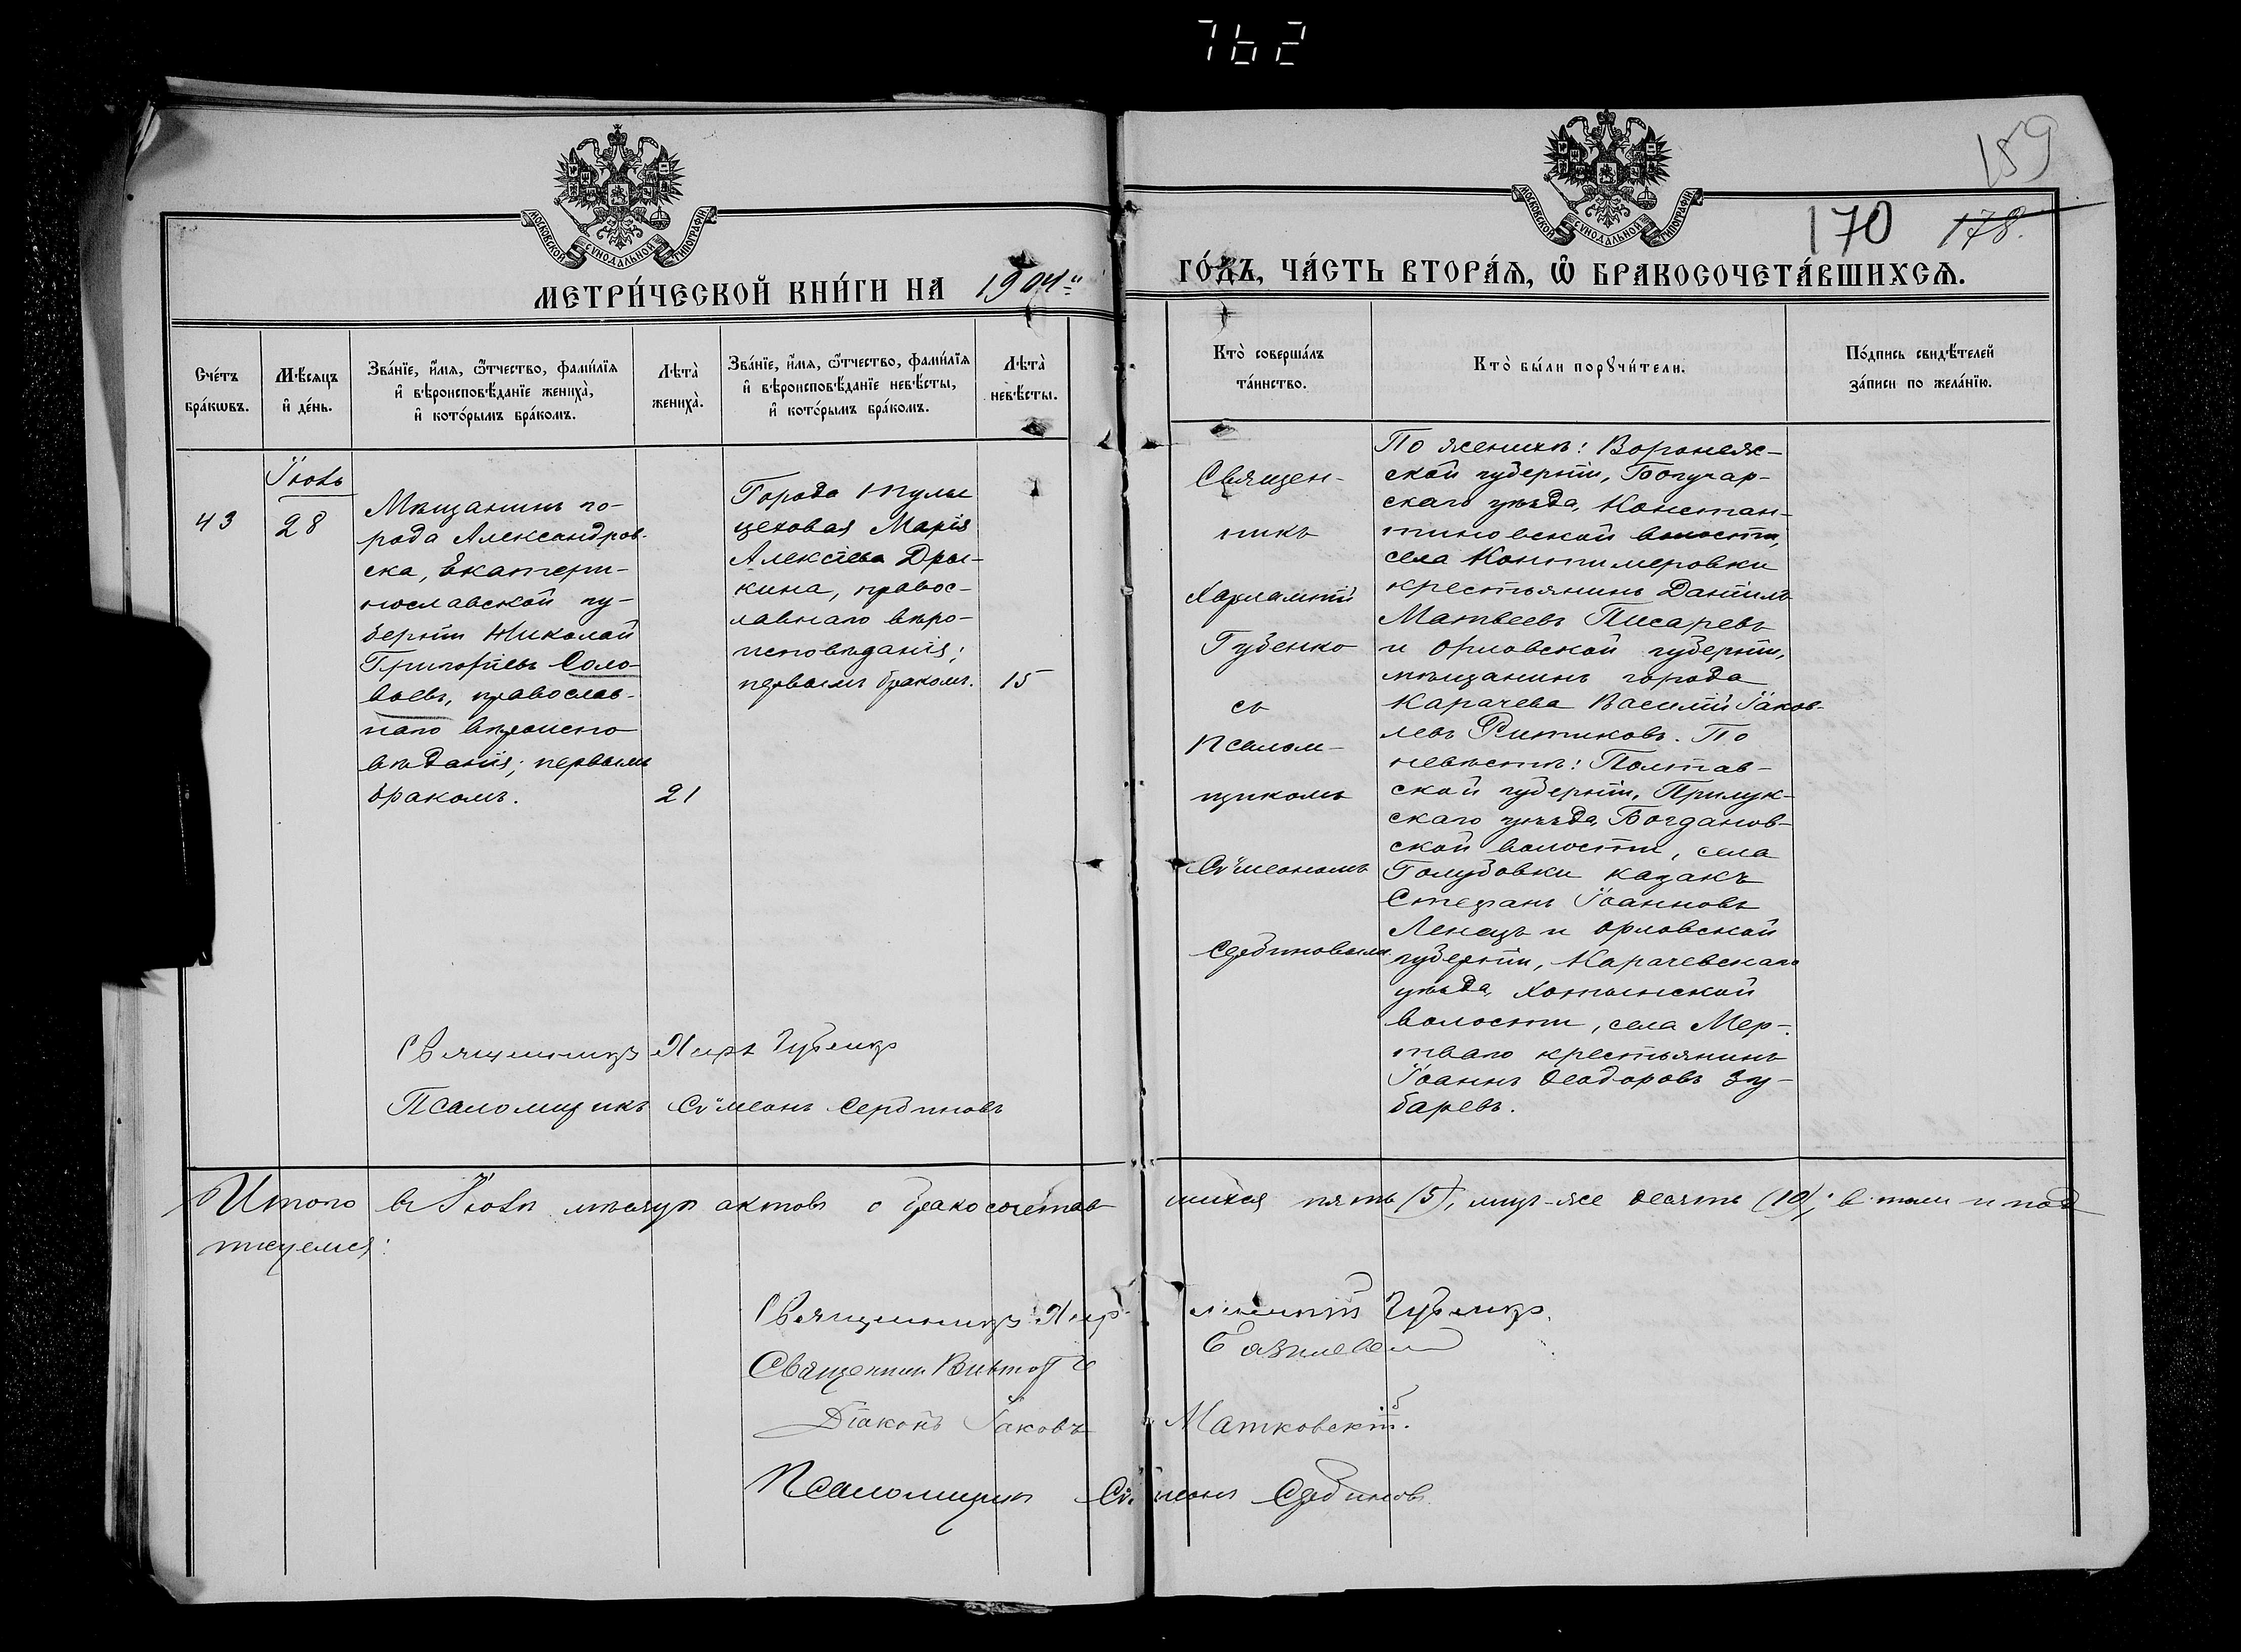 762
159
170 178.
МОСКОВСКОЙ СУНОДАЛЬНОЙ ТИПОГРАФІИ
МОСКОВСКОЙ СУНОДАЛЬНОЙ ТИПОГРАФІИ
МЕТРИ́ЧЕСКОЙ КНИ́ГИ НА 1904 ГО́ДЪ, ЧА́СТЬ ВТОРА́Я, Ѡ БРАКОСОЧЕТА́ВШИХСЯ.
Сче́тъ
бра́кѡвъ.
Мѣ́сяцъ
и҆ де́нь.
Зва́нїе, и҆́мя, ѻ҆́тчество, фами́лїя
и҆ вѣроисповѣ́данїе жениха̀,
и҆ кото́рымъ бра́комъ.
Лѣта̀
жениха̀.
Зва́нїе, и҆́мя, ѻ҆́тчество, фами́лїя
и҆ вѣроисповѣ́данїе невѣ́сты,
и҆ кото́рымъ бра́комъ.
Лѣта̀
невѣ́сты.
Кто̀ соверша́лъ
та́инство.
Кто̀ бы́ли порꙋчи́тели.
По́дпись свидѣ́телей
за́писи по жела́нїю.
43
Іюнь
28
Мѣщанинъ го-
рода Александров-
ска, Екатери-
нославской гу-
берніи Николай
Григоріевъ Соло-
вьевъ, православ-
наго вѣроиспо
вѣданія; первымъ
бракомъ.
21
Города Тулы
цеховая Марія
Алексіева Дры-
кина, правос-
лавнаго вѣро-
исповѣданія;
первымъ бракомъ.
15
Священ-
никъ
Харлампій
Губенко
съ
псалом-
щикомъ
Сѵмеономъ
Сербиновымъ
По женихѣ: Воронеж-
ской губерніи, Богучар-
скаго уѣзда, Констан-
тиновской волости,
села
крестьянинъ Даніилъ
Матвеевъ Писаревъ
и Орловской губерніи,
мѣщанинъ города
Карачева Василій Іаков-
левъ Ситиковъ. По
невѣстѣ: Полтав-
ской губерніи, Прилук-
скаго уѣзда, Богданов-
ской волости, села
Голубовки казакъ
Стефанъ Іоанновъ
Ленецъ и Орловской
губерніи, Карачевскаго
уѣзда, Хотынской
волости, села Мер-
тваго крестьянинъ
Іоаннъ Ѳеодоровъ Зу-
баревъ.
Священникъ Харл. Губенко
Псаломщикъ Сѵмеонъ Сербиновъ
Итого въ Іюнѣ мѣсяцѣ актовъ о бракосочетав
шихся пять (5), лицъ-же десять (10); в томъ и под
писуемся:
Священникъ Хар-лампій Губенко.
Священникъ Викторъ Базилевичъ
Діаконъ Іаковъ Матковскій.
Псаломщикъ Сѵмеонъ Сербиновъ.